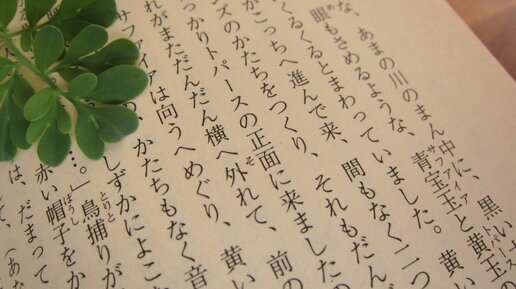 な、あまの川のまん中に、黒い
眼もさめるような、青宝玉と黄玉
くるくるとまわっていました。黄い
がこっちへ進んで来、間もなく二つ
ズのかたちをつくり、それもだん
っかりトパースの正面に来ました
れがまただんだん横へ外れて、前の
サファイアは向うへめぐり、黄い
、かたちもなく音
しずかによこた
…。」鳥捕りが
赤い帽子をか
は、だまって